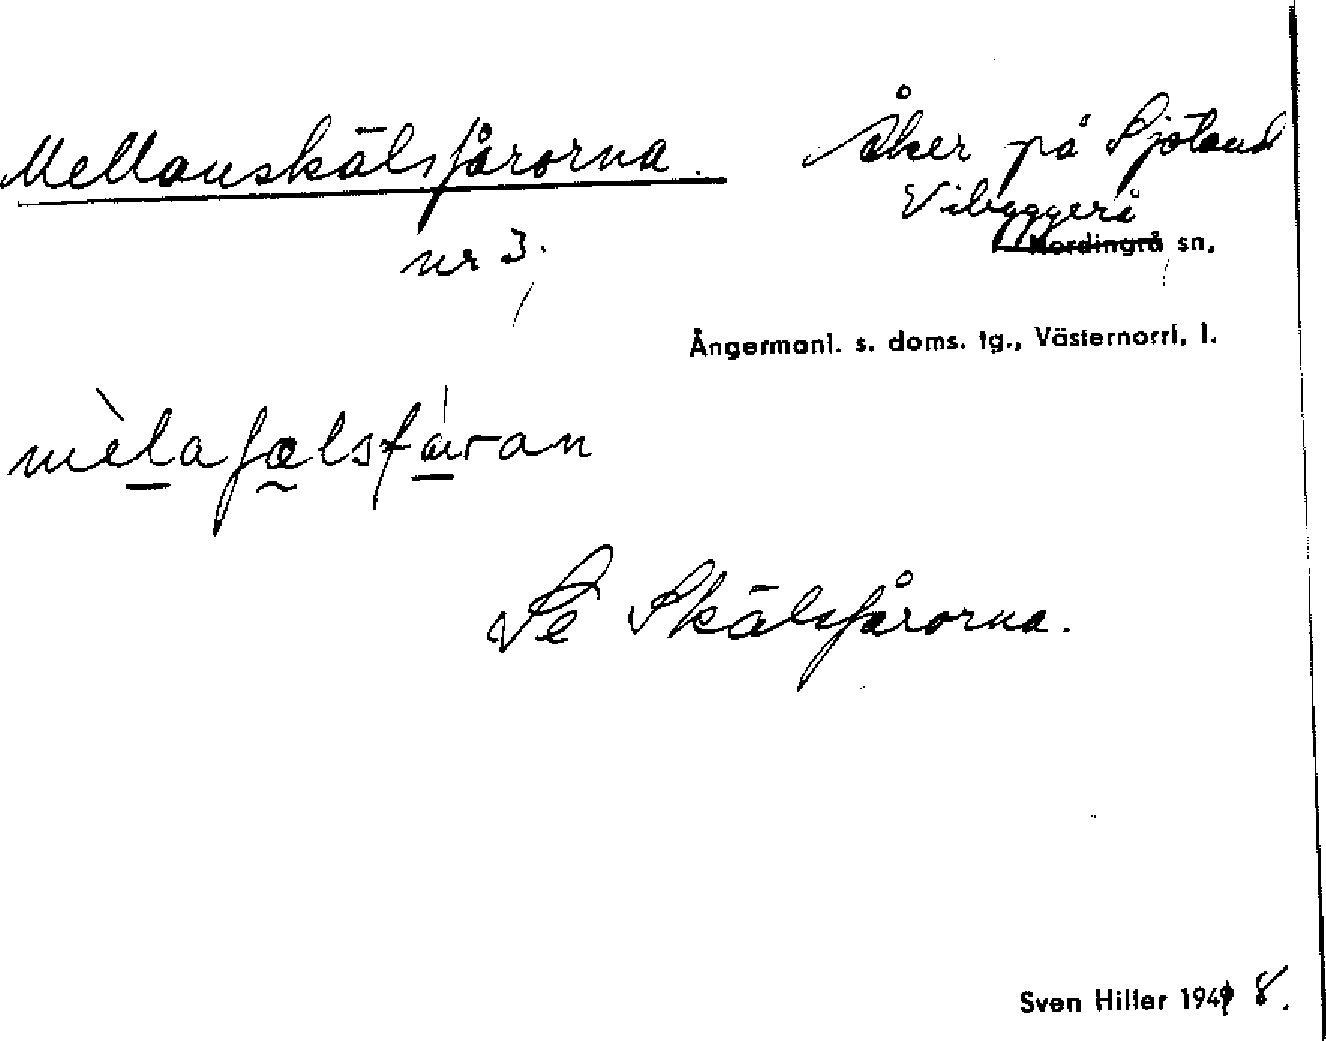 Mellanskälsfårorna.
Åker på Sjöland
nr 3.
Vibyggerå
Nordingrå sn.
Ångermanl. s. doms. tg., Västernorrl. l.
mèlaʃælsfåran
Se Skälsfårorna.
Sven Hiller 1948.